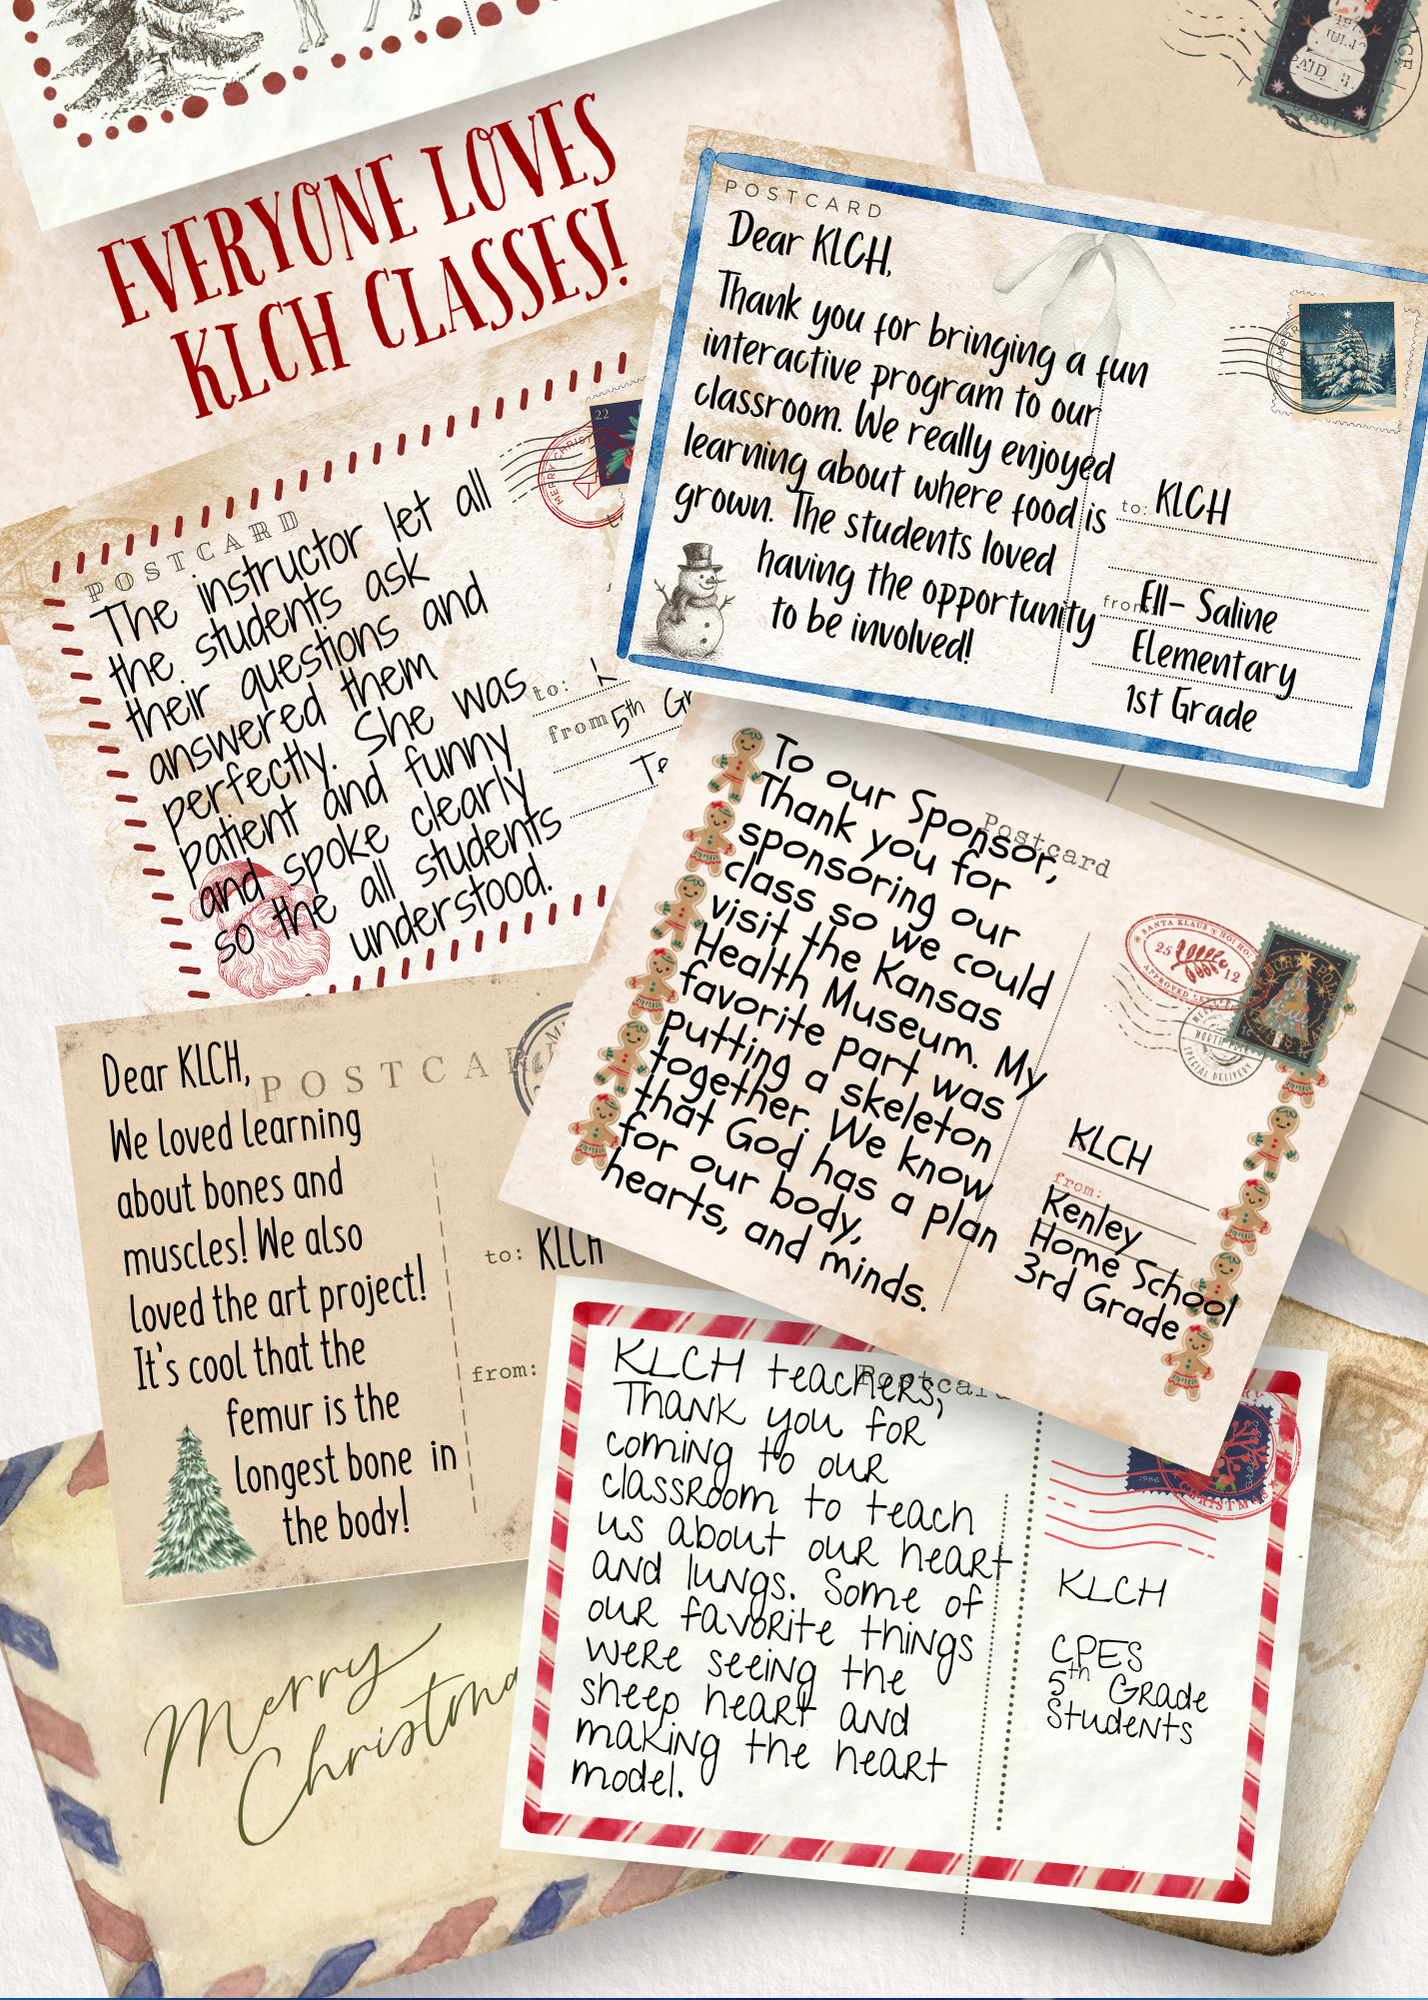 EVERYONE LOVES
KLCH CLASSES!
POSTCARD
Dear KLCH,
Thank you for bringing a fun
interactive program to our
classroom. We really enjoyed
learning about where food is
grown. The students loved
having the opportunity
to be involved!
to: KLCH
from: Ell- Saline
Elementary
1st Grade
POSTCARD
The instructor let all
the students ask
their questions and
answered them
perfectly. She was
patient and funny
and spoke clearly
so the all students
understood.
22
to:
from 5th Gr
Postcard
To our Sponsor,
Thank you for
sponsoring our
class so we could
visit the Kansas
Health Museum. My
favorite part was
putting a skeleton
together. We know
that God has a plan
for our body,
hearts, and minds.
SANTA KLAUS'S HO! HO!
25 12
NORTH POLE
SPECIAL DELIVERY
KLCH
from:
Kenley
Home School
3rd Grade
POSTCAR
Dear KLCH,
We loved learning
about bones and
muscles! We also
loved the art project!
It's cool that the
femur is the
longest bone in
the body!
to: KLCH
from:
Postcard
KLCH teachers,
Thank you for
coming to our
classroom to teach
us about our heart
and lungs. Some of
our favorite things
were seeing the
sheep heart and
making the heart
model.
1986
CHRISTMAS
KLCH
CPES
5th Grade
Students
Merry
Christma